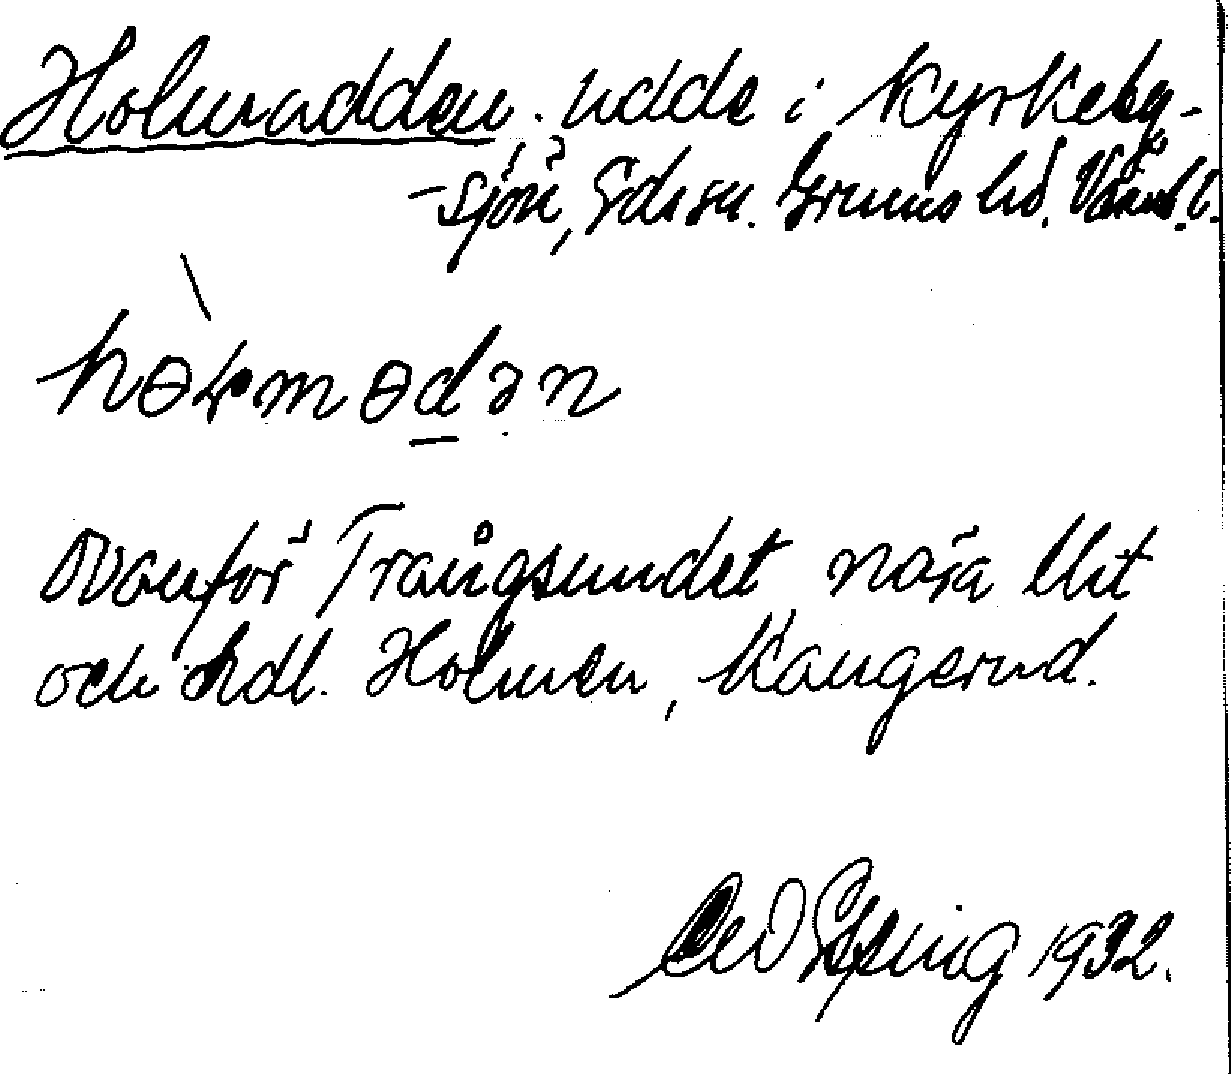 Holmadden, udde i Kyrkeby-
-sjön, Eds sn. Grums hd. Värml.
hɵ̀ɽmɵdən
Ovanför Trångsundet nära
och hdl. Holmen, Kangerud.
1932.